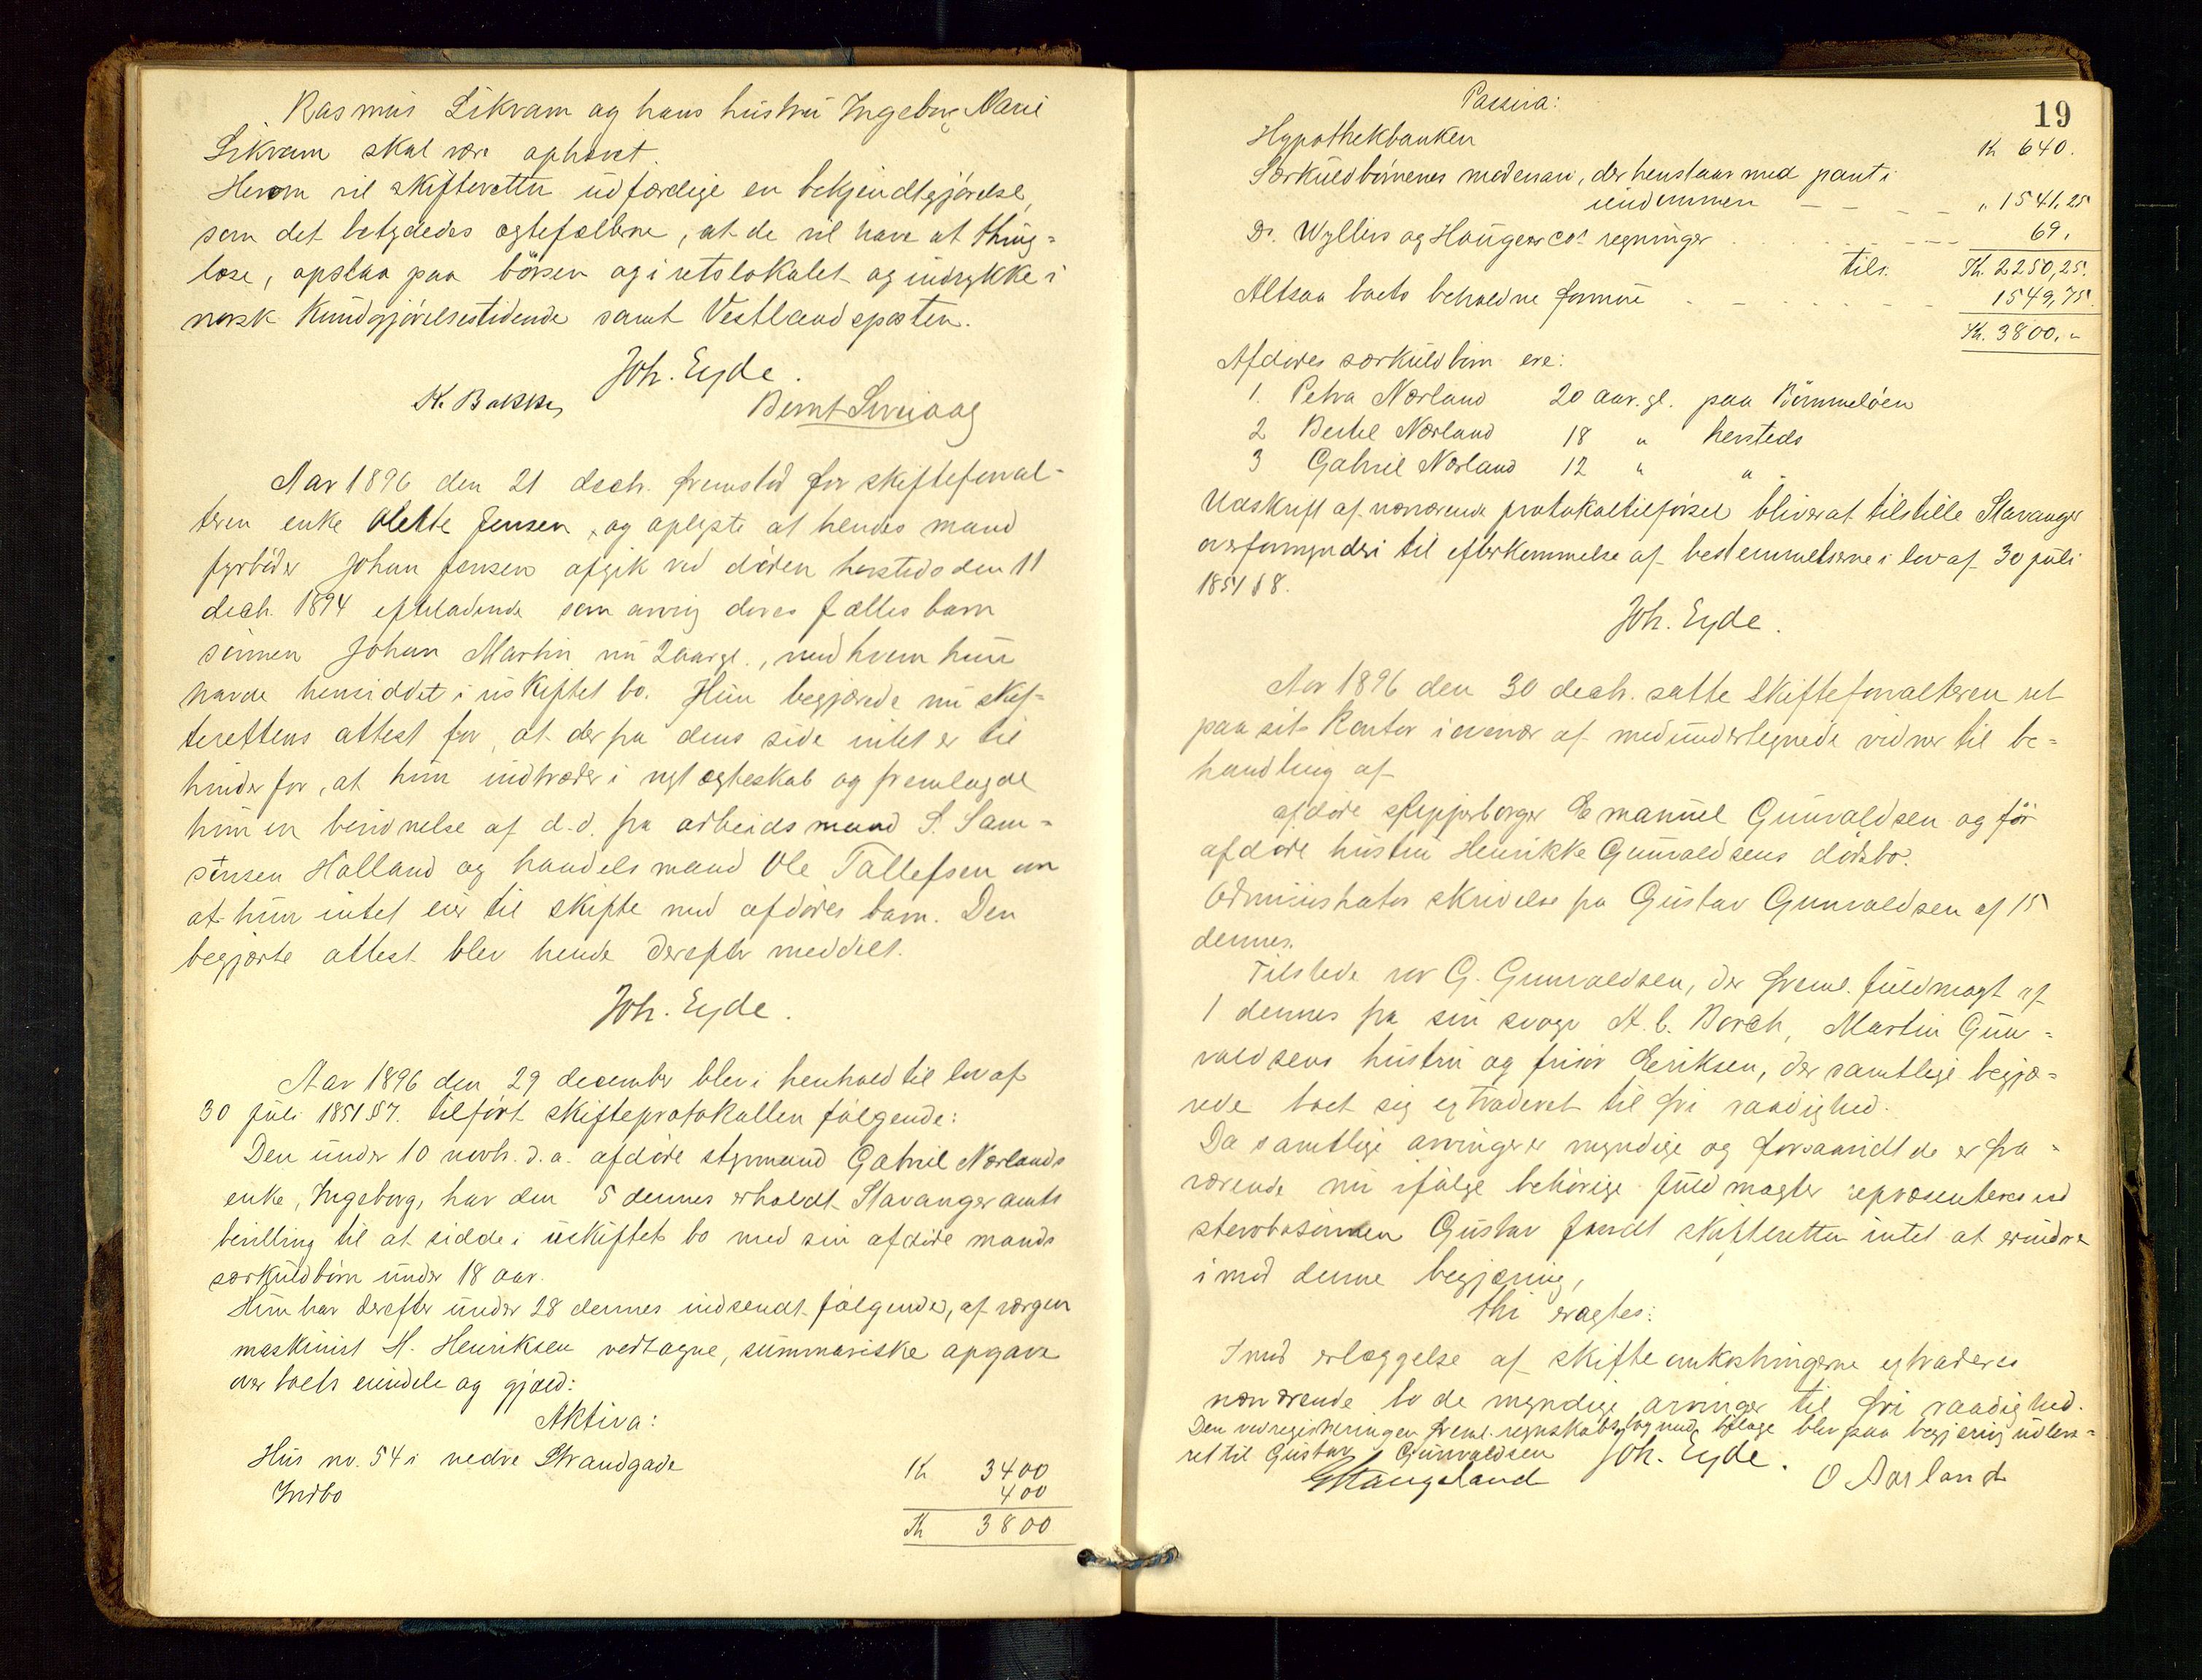 Rasmus Sikvam og hans hustru Ingeborg Marie
Sikvam skal være ophævet.
Herom vil skifteretten udfærdige en bekjendtgjörelse,
som det betydedes ægtefællerne, at de vil have at thing=
læse, opslaa paa börsen og i retslokalet og indrykke i
norsk Kundgjörelsestidende samt Vestlandsposten.
Joh. Eyde.
K. Bakke Bernt
Aar 1896 den 21 decb. fremstod for skifteforval-
teren enke Olette Jensen og oplyste at hendes mand
fyrböder Johan Jensen afgik ved döden hersteds den 11
decb. 1894 efterladende som arving deres fælles barn
sönnen Johan Martin nu 2 aar gl., med hvem hun
havde hensiddet i uskiftet bo. Hun begjærede nu skif=
terettens attest for, at der fra dens side intet er til
hinder for, at hun indtræder i nyt ægteskab og fremlagde
hun en bevidnelse af d.d. fra arbeidsmand S. Sam=
sonsen Halland og handelsmand Ole Tallefsen om
at hun intet eier til skifte med afdödes barn. Den
begjærte attest blev hende derefter meddelt.
Joh. Eyde.
Aar 1896 den 29 december blev i henhold til lov af
30 juli 1851 § 7. tilfört skifteprotokollen fölgende:
Den under 10 novb. d.a. afdöde styrmand Gabriel Nærlands
enke, Ingeborg, har den 5 dennes erholdt Stavanger amts
bevilling til at sidde i uskiftet bo med sin afdöde mands
særkuldbörn under 18 aar.
Hun har derefter under 28 dennes indsendt fölgende, af værgen
maskinist H. Henriksen vedtagne, summariske opgave
over boets eiendele og gjæld:
Aktiva:
Hus nr. 54 i nedre Strandgade Kr 3400
Indbo 400
Kr 3800
19
Passiva:
Hypothekbanken Kr 640.
Særkuldbörnenes mödrenarv, der henstaar med pant i
eiendommen " 1541,25
Dr. Wyllers og Hauge & Co's regninger 69,
tils. Kr. 2250,25.
Altsaa boets beholdne formue 1549,75.
Kr. 3800.-
Afdödes særkuldbörn ere:
1. Petra Nærland 20 aar gl. paa Bömmelöen
2 Bertel Nærland 18 " hersteds
3 Gabriel Nærland 12 " "
Udskrift af nærværende protokoltilförsel bliver at tilstille Stavanger
overformynderi til efterkommelse af bestemmelserne i lov af 30 juli
1851 § 8.
Joh. Eyde.
Aar 1896 den 30 decb. satte skifteforvalteren ret
paa sit kontor i overvær af medundertegnede vidner til be=
handling af
afdöde skipperborger Emanuel Gunvaldsen og för
afdöde hustru Henrikke Gunvaldsens dödsbo.
Administrator skrivelse fra Gustav Gunvaldsen af 15
dennes.
Tilstede var G. Gunvaldsen, der freml. fuldmagt af
1 dennes fra sin svoger A. C. Borch, Martin Gun=
valdsens hustru og frisör Eeriksen, der samtlige begjæ=
rede boet sig extraderet til fri raadighed.
Da samtlige arvinger er myndige og forsaavidt de er fra=
værende nu ifölge behörige fuldmagter repræsenteres ved
stervbosönnen Gustav fandt skifteretten intet at erindre
imod denne begjæring,
thi eragtes:
Imod erlæggelse af skifteomkostningerne extraderes
nærværende bo de myndige arvinger til fri raadighed.
Den ved registreringen freml. regnskabsbog med bilage blev paa begjæring udleve=
ret til Gustav Gunvaldsen Joh. Eyde.
Stangeland O Aarland